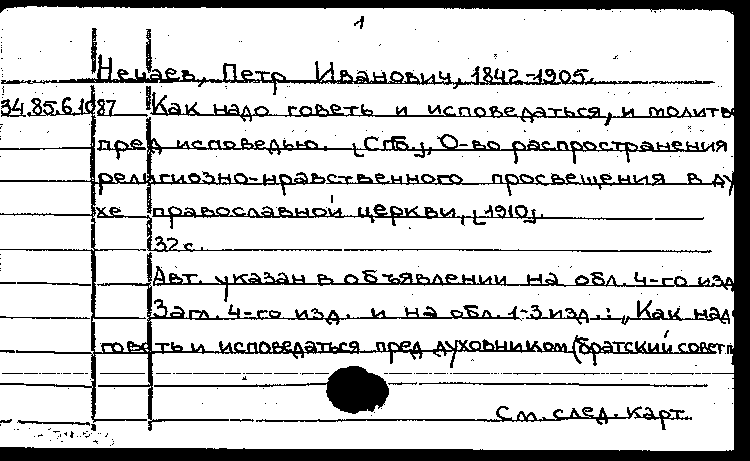 1
Нечаев, Петр Иванович, 1842-1905.
34.85.6.1087 Как надо говеть и исповедаться, и молитв
пред исповедью. [СПб.], О-во распространения
религиозно-нравственного просвещения в ду
хе православной церкви, [1910].
32 с.
Авт. указан в объявлении на обл. 4-го изд
Загл. 4-го изд. и на обл. 1-3 изд.: „Как над
говеть и исповедаться пред духовником (братский совет
См. след. карт.